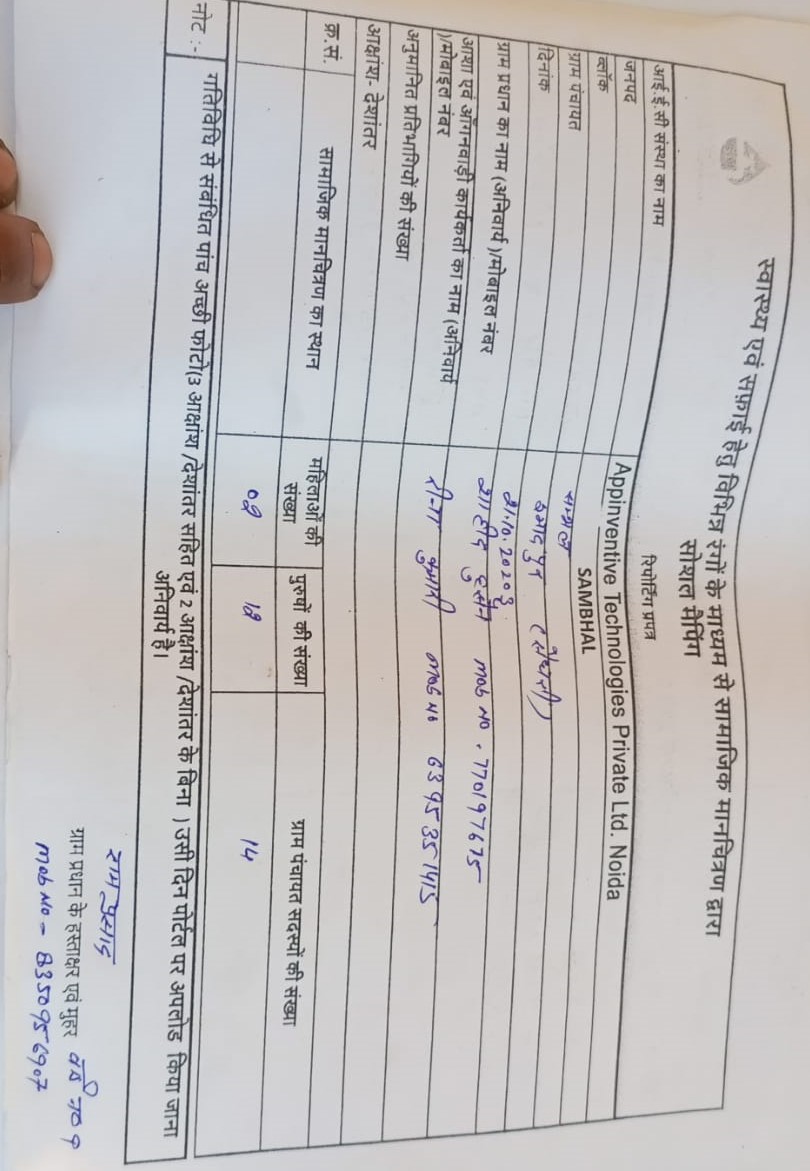 स्वास्थ्य एवं सफ़ाई हेतु विभिन्न रंगों के माध्यम से सामाजिक मानचित्रण द्वारा
सोशल मैपिंग
रिपोर्टिंग प्रपत्र
आई.ई.सी संस्था का नाम Appinventive Technologies Private Ltd. Noida
जनपद SAMBHAL
ब्लॉक सम्भल
ग्राम पंचायत
दिनांक 21.10.2020
ग्राम प्रधान का नाम (अनिवार्य )/मोबाइल नंबर हुसैन mob NO . 7701977675
आशा एवं आँगनवाड़ी कार्यकर्ता का नाम (अनिवार्य
)/मोबाइल नंबर कुमारी mob No 6395351415
अनुमानित प्रतिभागियों की संख्या
आक्षांश- देशांतर
क्र.सं. सामाजिक मानचित्रण का स्थान महिलाओं की संख्या पुरुषों की संख्या ग्राम पंचायत सदस्यों की संख्या
02 12 14
नोट :- गतिविधि से संबंधित पांच अच्छी फोटो(3 आक्षांश /देशांतर सहित एवं 2 आक्षांश /देशांतर के बिना ) उसी दिन पोर्टल पर अपलोड किया जाना
अनिवार्य है।
राम प्रसाद
ग्राम प्रधान के हस्ताक्षर एवं मुहर
mob No - 8350956907